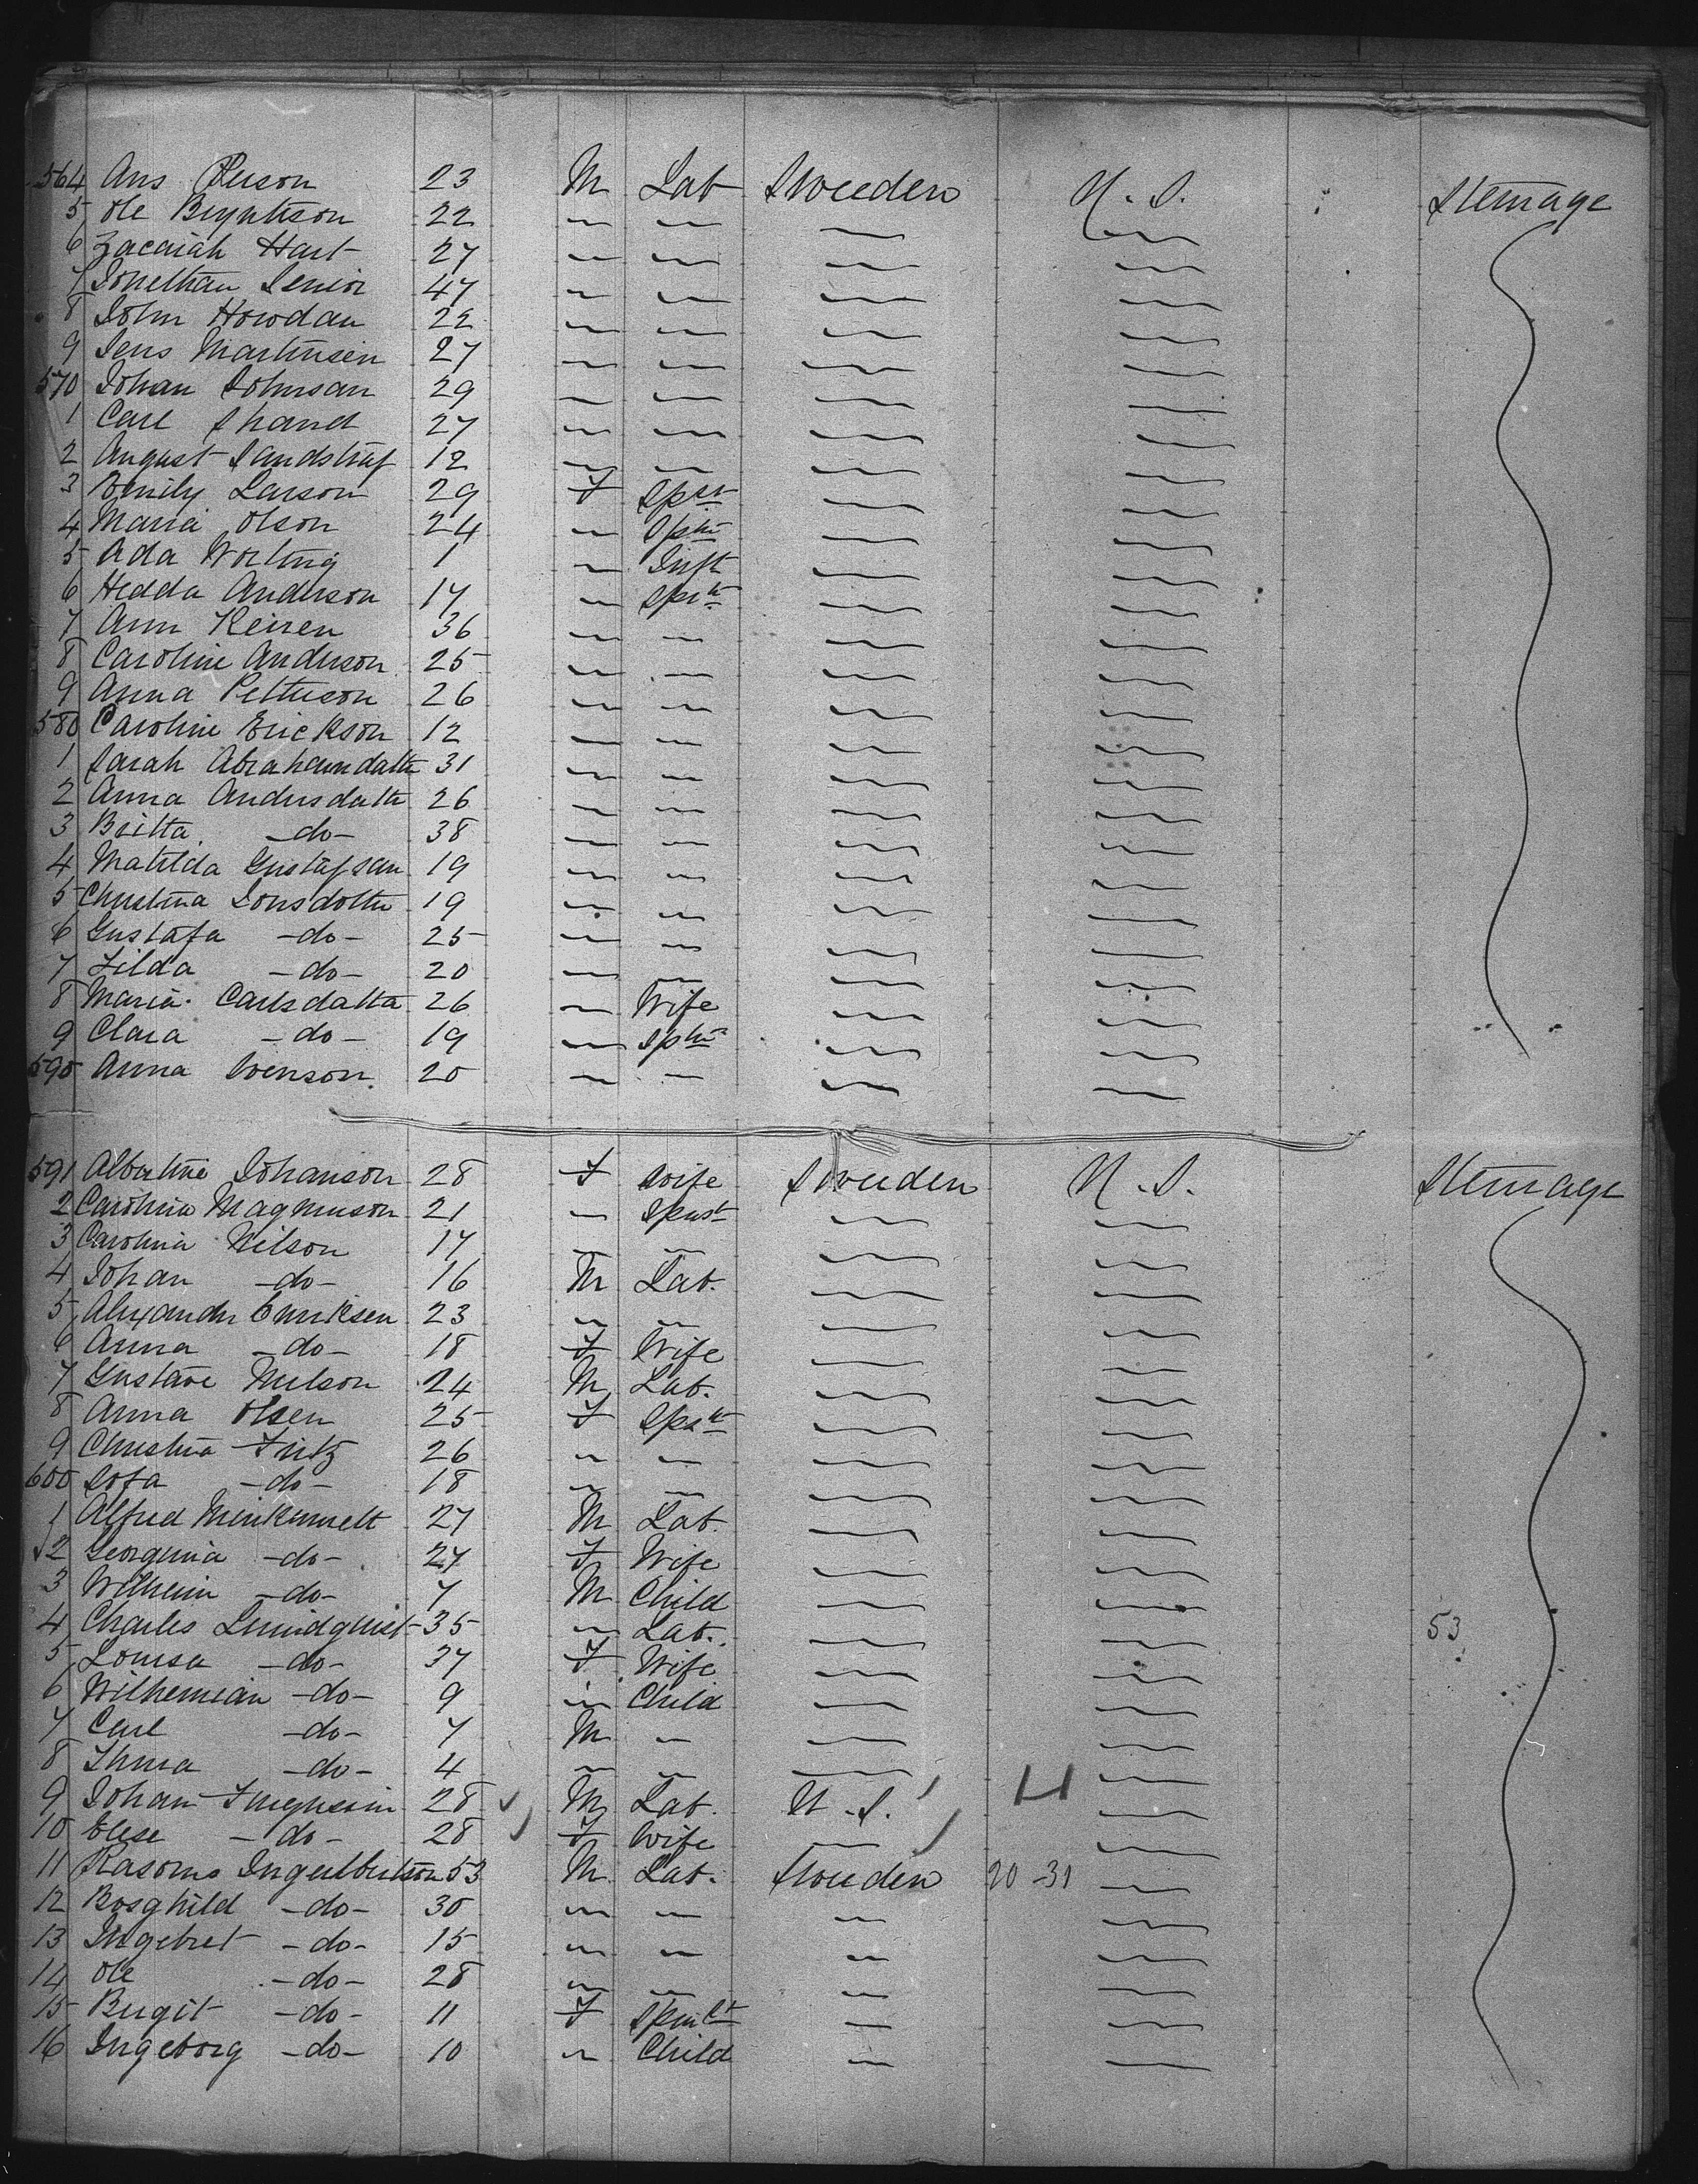 564 Ans Peison 23 M Lab Sweeden U.S. Steerage
5 Ole 22 " " " "
6 Zacariah Hart 27 " " " "
7 Jonethan Senior 47 " " " "
8 John Howdan 22 " " " "
9 Jens Martinsen 27 " " " "
570 Johan Johnsan 29 " " " "
1 Carl Shand 27 " " " "
2 August Sandstraf 12 " " " "
3 Emily Larson 29 F Spstr " "
4 Maria Olson 24 " Spstr " "
5 Ada Worting 1 " Inft " "
6 Hedda Anderson 17 " Spstr " "
7 Ann Keiren 36 " " " "
8 Caroline Anderson 25 " " " "
9 Anna Petterson 26 " " " "
580 Caroline Erickson 12 " " " "
1 Sarah Abrahamdatter 31 " " " "
2 Anna Andersdatter 26 " " " "
3 Britta -do- 38 " " " "
4 Matilda Gustafsan 19 " " " "
5 Christina Jonsdotter 19 " " " "
6 Gustafa -do- 25 " " " "
7 Filda -do- 20 " " " "
8 Maria Carlsdatta 26 " Wife " "
9 Clara -do- 19 " Spstr " "
590 Anna Svenson 20 " " " "
591 Albertine Johanson 28 F Wife Sweeden U.S. Steerage
2 Carolina Magnuson 21 " Spinst " "
3 Carolina Nilson 17 " " " "
4 Johan -do- 16 M Lab. " "
5 Alexander Emriksen 23 " " " "
6 Anna -do- 18 F Wife " "
7 Gustave Nielson 24 M Lab. " "
8 Anna Olsen 25 F Spstr " "
9 Christina Fritz 26 " " " "
600 Sofa -do- 18 " " " "
1 Alfred 27 M Lab. " "
2 Georgina -do- 27 F Wife " "
3 Wilheim -do- 7 M Child " "
4 Charles Lundquist 35 " Lab. " " 53
5 Louisa -do- 37 F Wife " "
6 Wilhemian -do- 9 " Child " "
7 Carl -do- 7 M " " "
8 -do- 4 " " " "
9 Johan 28 M Lab. U.S. "
10 Elese -do- 28 F Wife " "
11 Rasoms Ingelbutson 53 M Lab. Sweeden 20-31 "
12 Bosghild -do- 30 " " " "
13 Ingebret -do- 15 " " " "
14 Ole -do- 28 " " " "
15 Bugit -do- 11 F Spinst " "
16 Ingeborg -do- 10 " Child " "